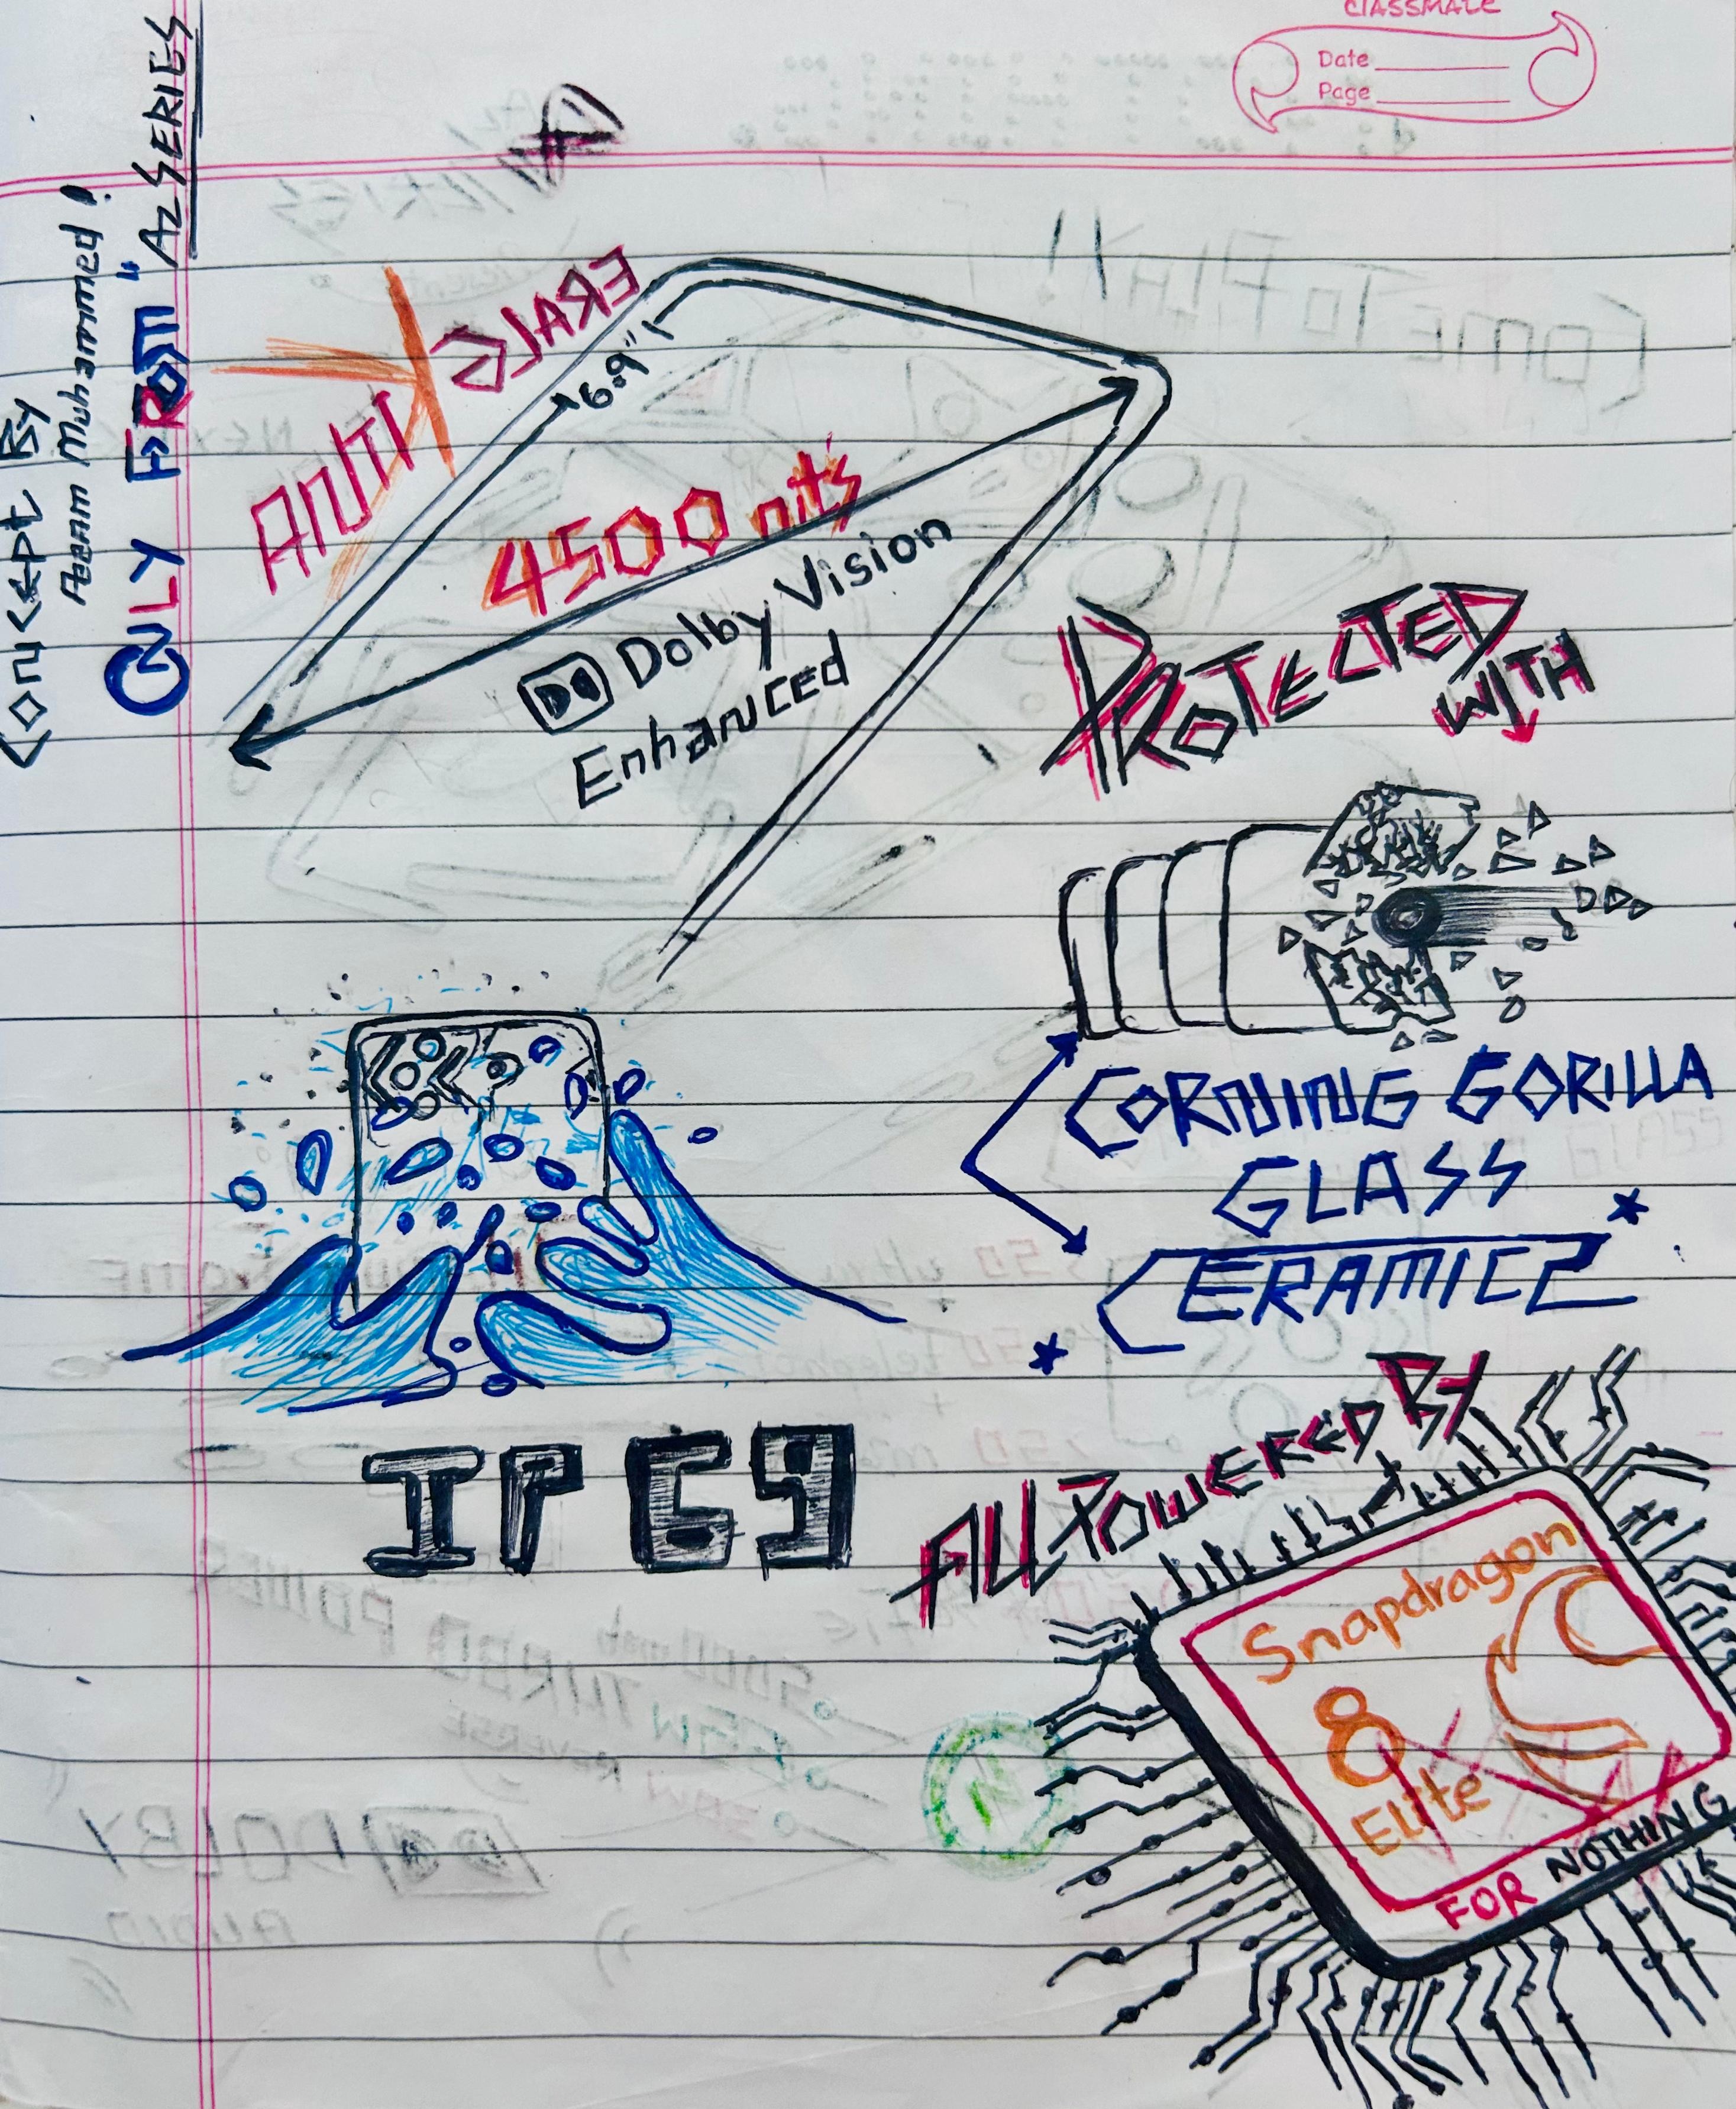 classmate
Date
Page
Concept By
Azeam Muhammed!
ONLY FROM "AZ SERIES
ANTI
ERASE
6.9"
4500 nit's
Dolby Vision
Enhanced
PROTECTED
WITH
CORNING GORILLA
GLASS
CERAMIC 2
IP69
ALL POWERED BY
Snapdragon
8
Elite
FOR NOTHING